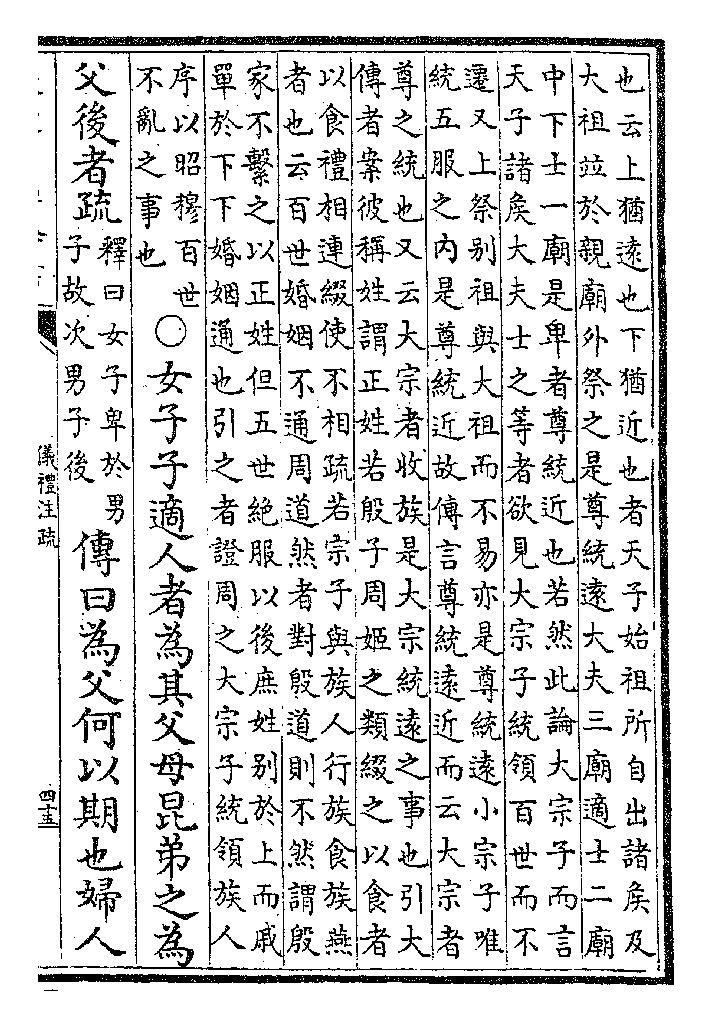 也云上猶遠也下猶近也者天子始祖所自出諸侯及
大祖並於親廟外祭之是尊統遠大夫三廟適士二廟
中下士一廟是卑者尊統近也若然此論大宗子而言
天子諸侯大夫士之等者欲見大宗子統領百世而不
遷又上祭別祖與大祖而不易亦是尊統遠小宗子唯
統五服之內是尊統近故傳言尊統遠近而云大宗者
尊之統也又云大宗者收族是大宗統遠之事也引大
傳者案彼稱姓謂正姓若殷子周姬之類綴之以食者
以食禮相連綴使不相疏若宗子與族人行族食族燕
者也云百世婚姻不通周道然者對殷道則不然謂殷
家不繫之以正姓但五世絶服以後庶姓別於上而戚
單於下下婚姻通也引之者證周之大宗子統領族人
序以昭穆百世
不亂之事也
○女子子適人者為其父母昆弟之為
父後者疏
釋曰女子卑於男
子故次男子後
傳曰為父何以期也婦人
儀禮注疏
四十五